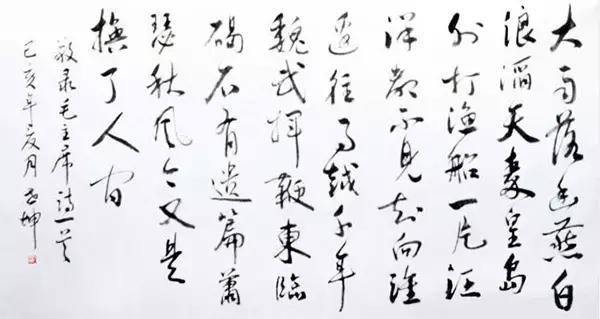 大雨落幽燕白
浪滔天秦皇島
外打渔船一片汪
洋都不见知向誰
邊往事越千年
魏武揮鞭東臨
碣石有遗篇蕭
瑟秋風今又是
换了人间
敬录毛主席诗一首
己亥年夏月 坤